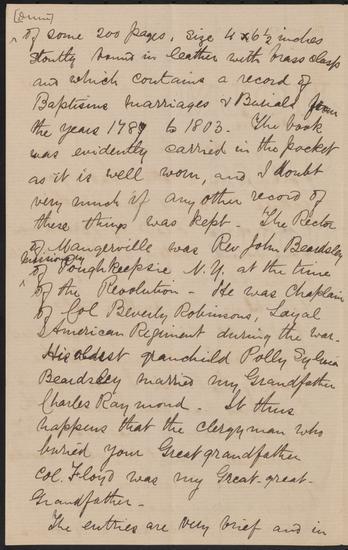 [Dunn]
of some 200 pages, size 4 x 6½ inches
stoutly bound in leather with brass clasp
and which contains a record of
Baptisms Marriages & Burials from
the years 1787 to 1803. The book
was evidently carried in the pocket
as it is well worn, and I doubt
very much if any other record of
these things was kept. The Rector
of Maugerville was Rev John Beardsley
missionary
of Poughkeepsie N.Y. at the time
of the Revolution. He was Chaplain
of Col Beverly Robinsons, Loyal
American Regiment during the war.
His oldest grandchild Polly Sylvia
Beardsley married my Grandfather
Charles Raymond. It thus
happens that the clergyman who
buried your Great grandfather
Col. Floyd was my Great-great-
Grandfather.
The entries are very brief and in